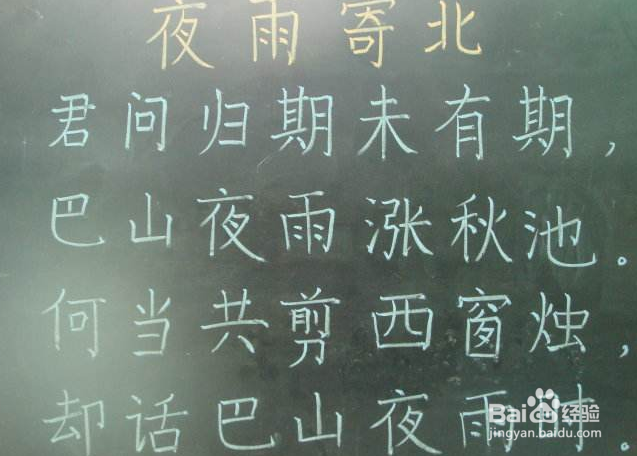 夜雨寄北
君问归期未有期，
巴山夜雨涨秋池。
何当共剪西窗烛，
却话巴山夜雨时。
Baidu经验
jingyan.baidu.com